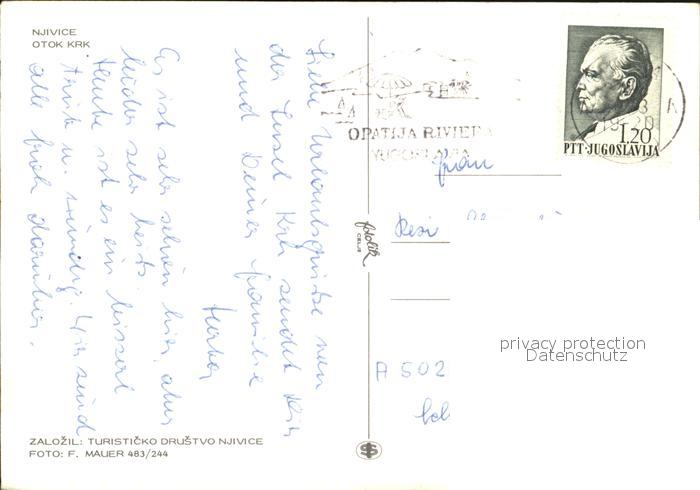 NJIVICE
OTOK KRK
Liebe Urlaubsgrüße von
der Insel Krk sendet Dir
und Deiner Familie
Es ist sehr schön hier, aber
leider sehr heiß.
heute ist es ein bisserl
trüb u. windig. Wir sind
alle froh darüber.
OPATIJA RIVIERA
YUGOSLAVIA
1.20
PTT·JUGOSLAVIJA
Frau
Resi
A 502
fotolik
CELJE
privacy protection
Datenschutz
ZALOŽIL: TURISTIČKO DRUŠTVO NJIVICE
FOTO: F. MAUER 483/244